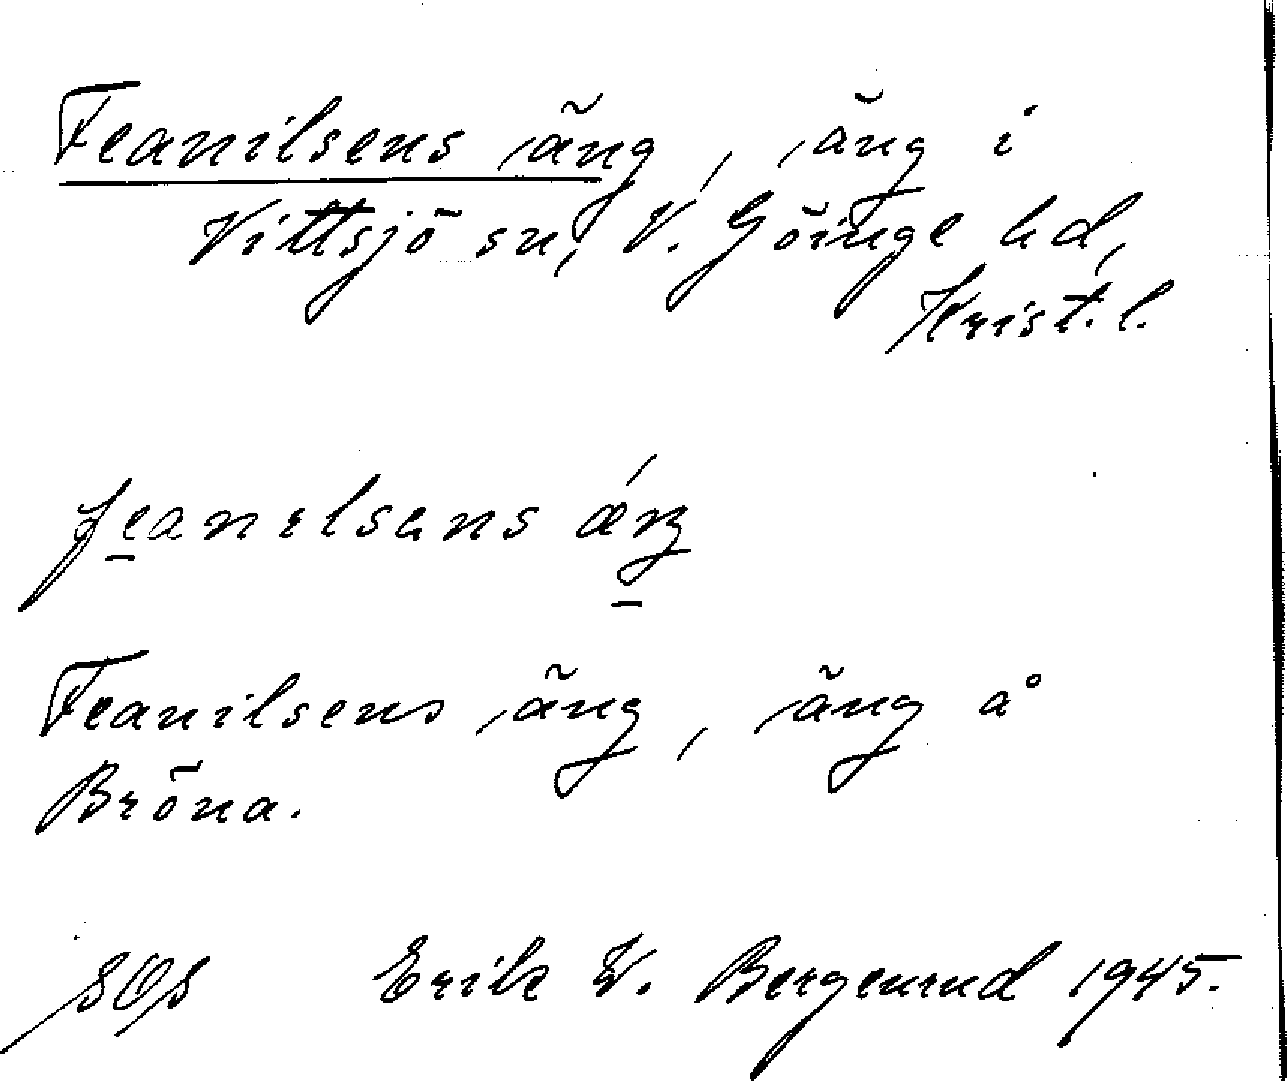 Feanilsens äng, äng i
Vittsjö sn, V. Göinge hd,
Krist. l.
feanelsens ǽŋ
Feanilsens äng, äng å
Bröna.
SOS Erik W. Bergenrud 1945.